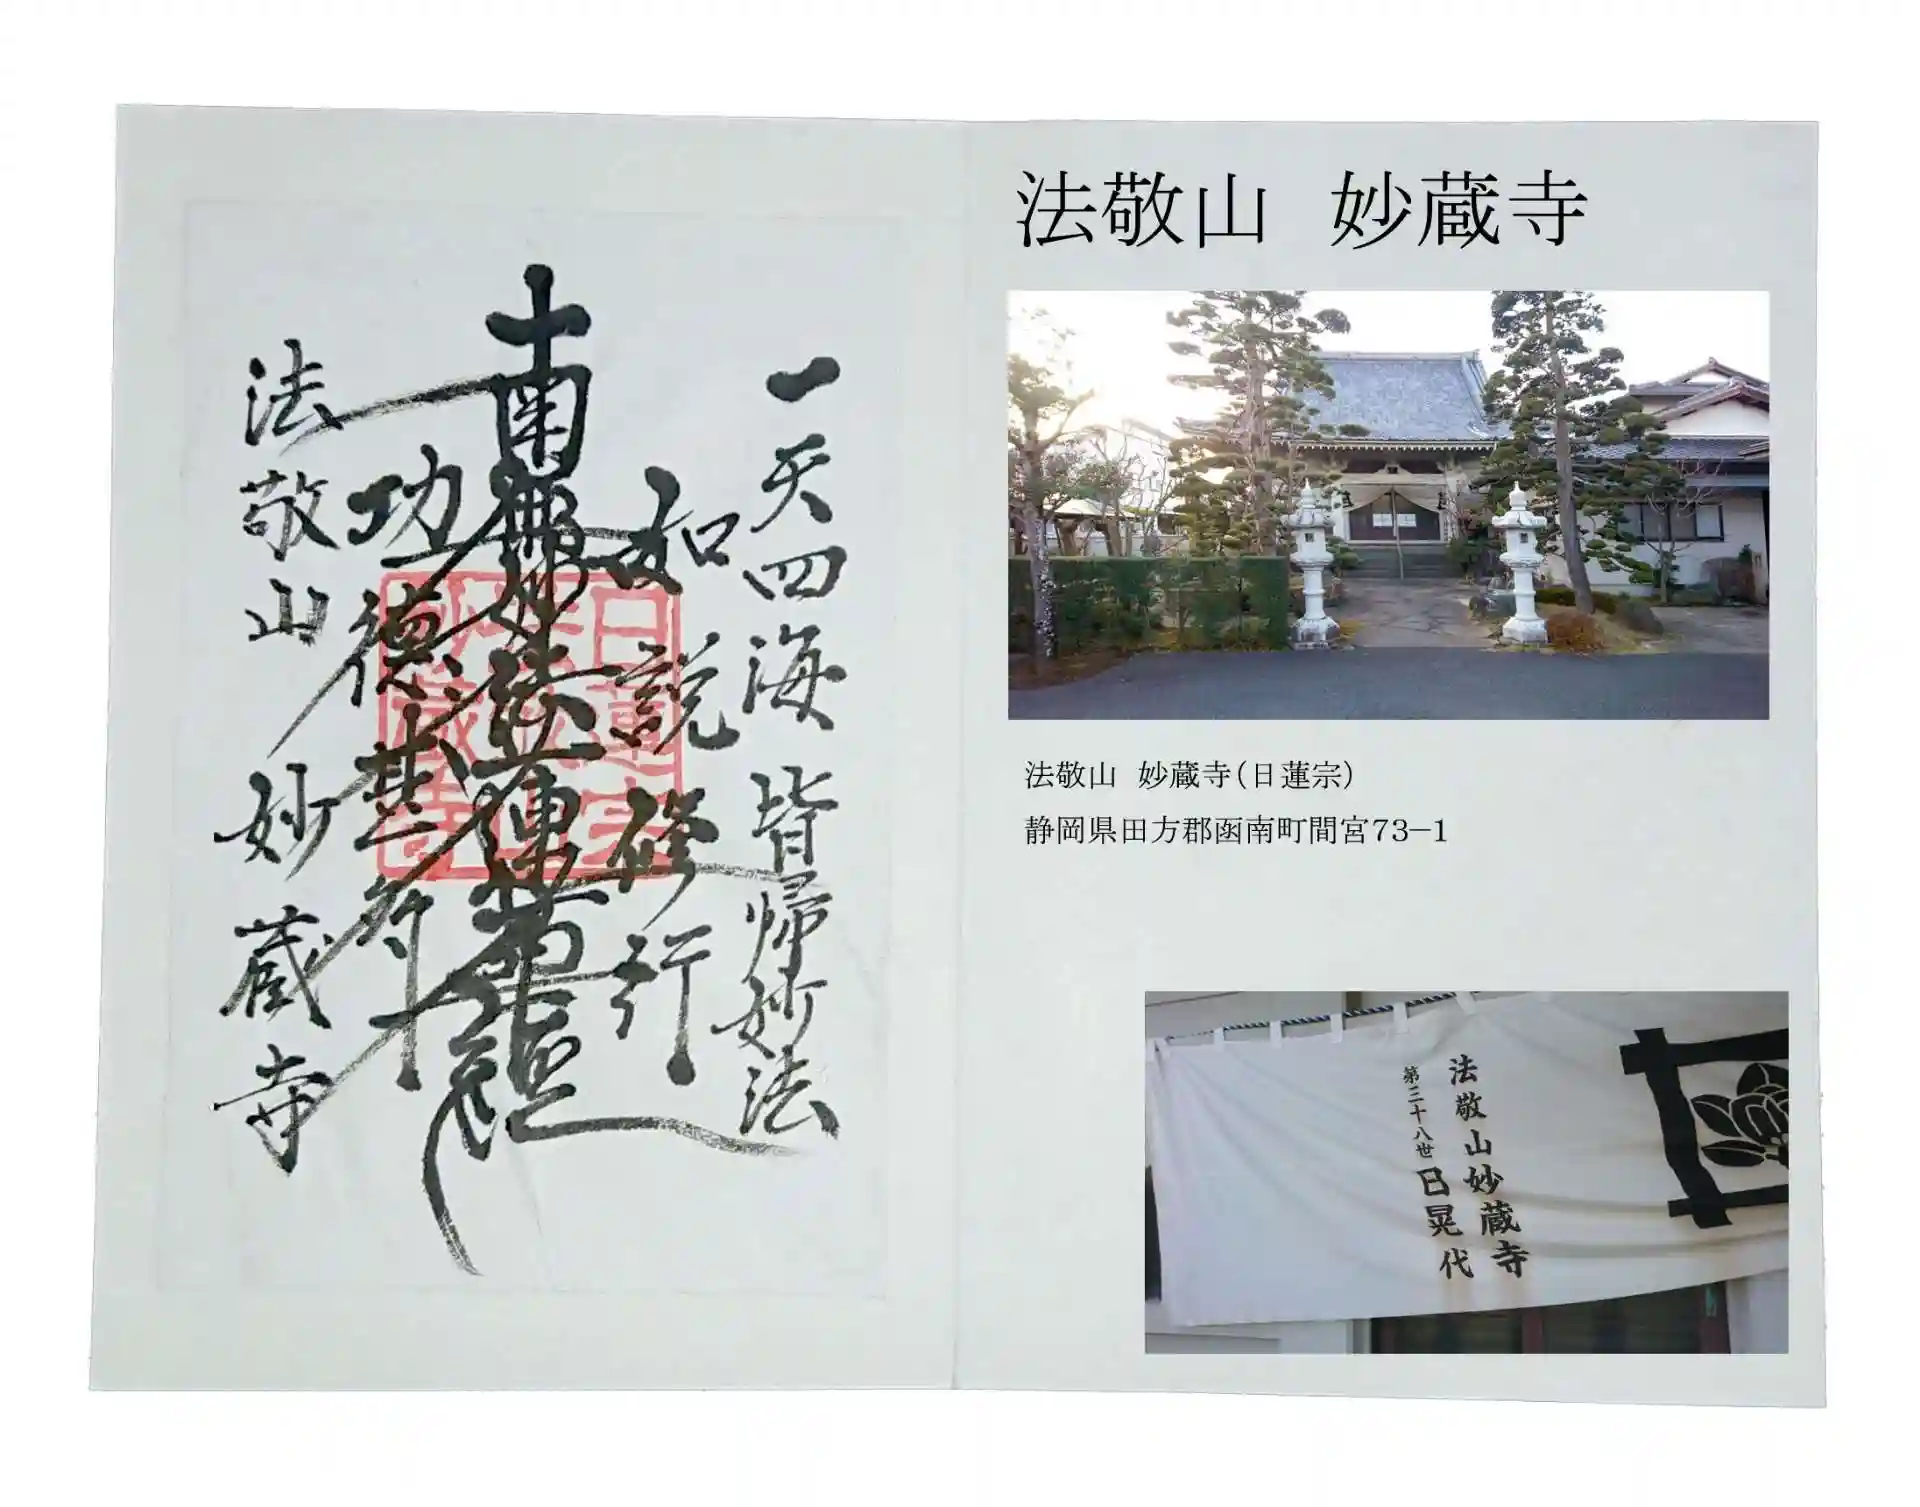 一天四海皆帰妙法
如説修行
南無妙法蓮華経
功徳甚多
法敬山
妙蔵寺
日蓮宗
妙蔵寺
法敬山　妙蔵寺
法敬山　妙蔵寺（日蓮宗）
静岡県田方郡函南町間宮73−1
法敬山妙蔵寺
第三十八世 日晃代